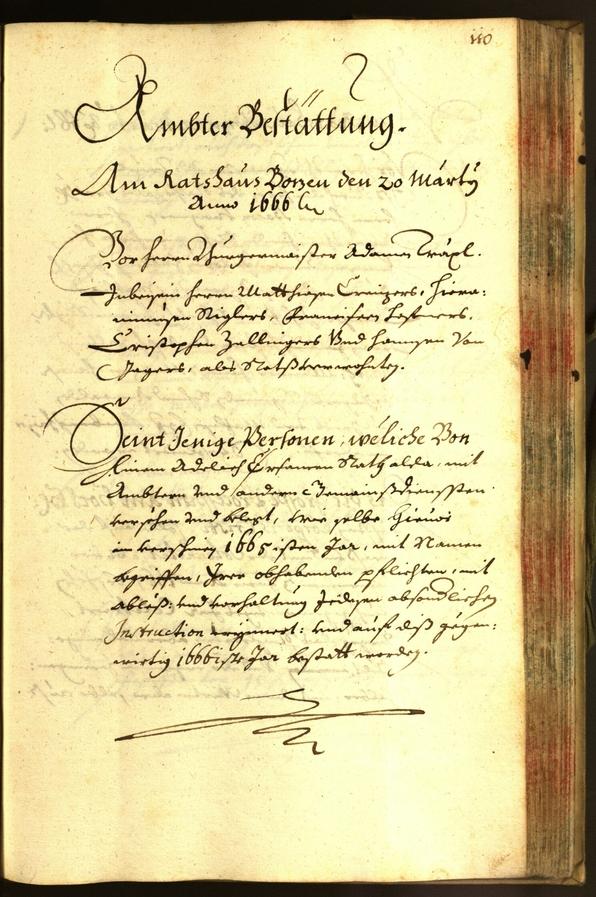 110
Ambter Bestättung.
Am Ratshaus Bozen den 20 Marty
Anno 1666 
Vor herrn Burgermaister Adamen Träxl.
Inbeisein herrn Matthiasen Creizers, Hiero:
nimusen Riglers, Francischen
Cristophen Zallingers Vnd Hannsen Von
Jagers, als Ratßverwohnten.
Seint Jenige Persohnen, wöliche Von
Einem Adelich Ersamen Rath alda, mit
Ambtern vnd andern diennsten
versehen vnd belegt, wie selbe hieuor
im verschinen 1665isten Jar, mit Namen
begriffen, Irer obhabenden pflichten, mit
ableß: vnd vorhaltung Jedesen absonderlichen
Instruction erinnert: vnd auf daß gegen:
wirtig 1666iste Jar bestätt worden.